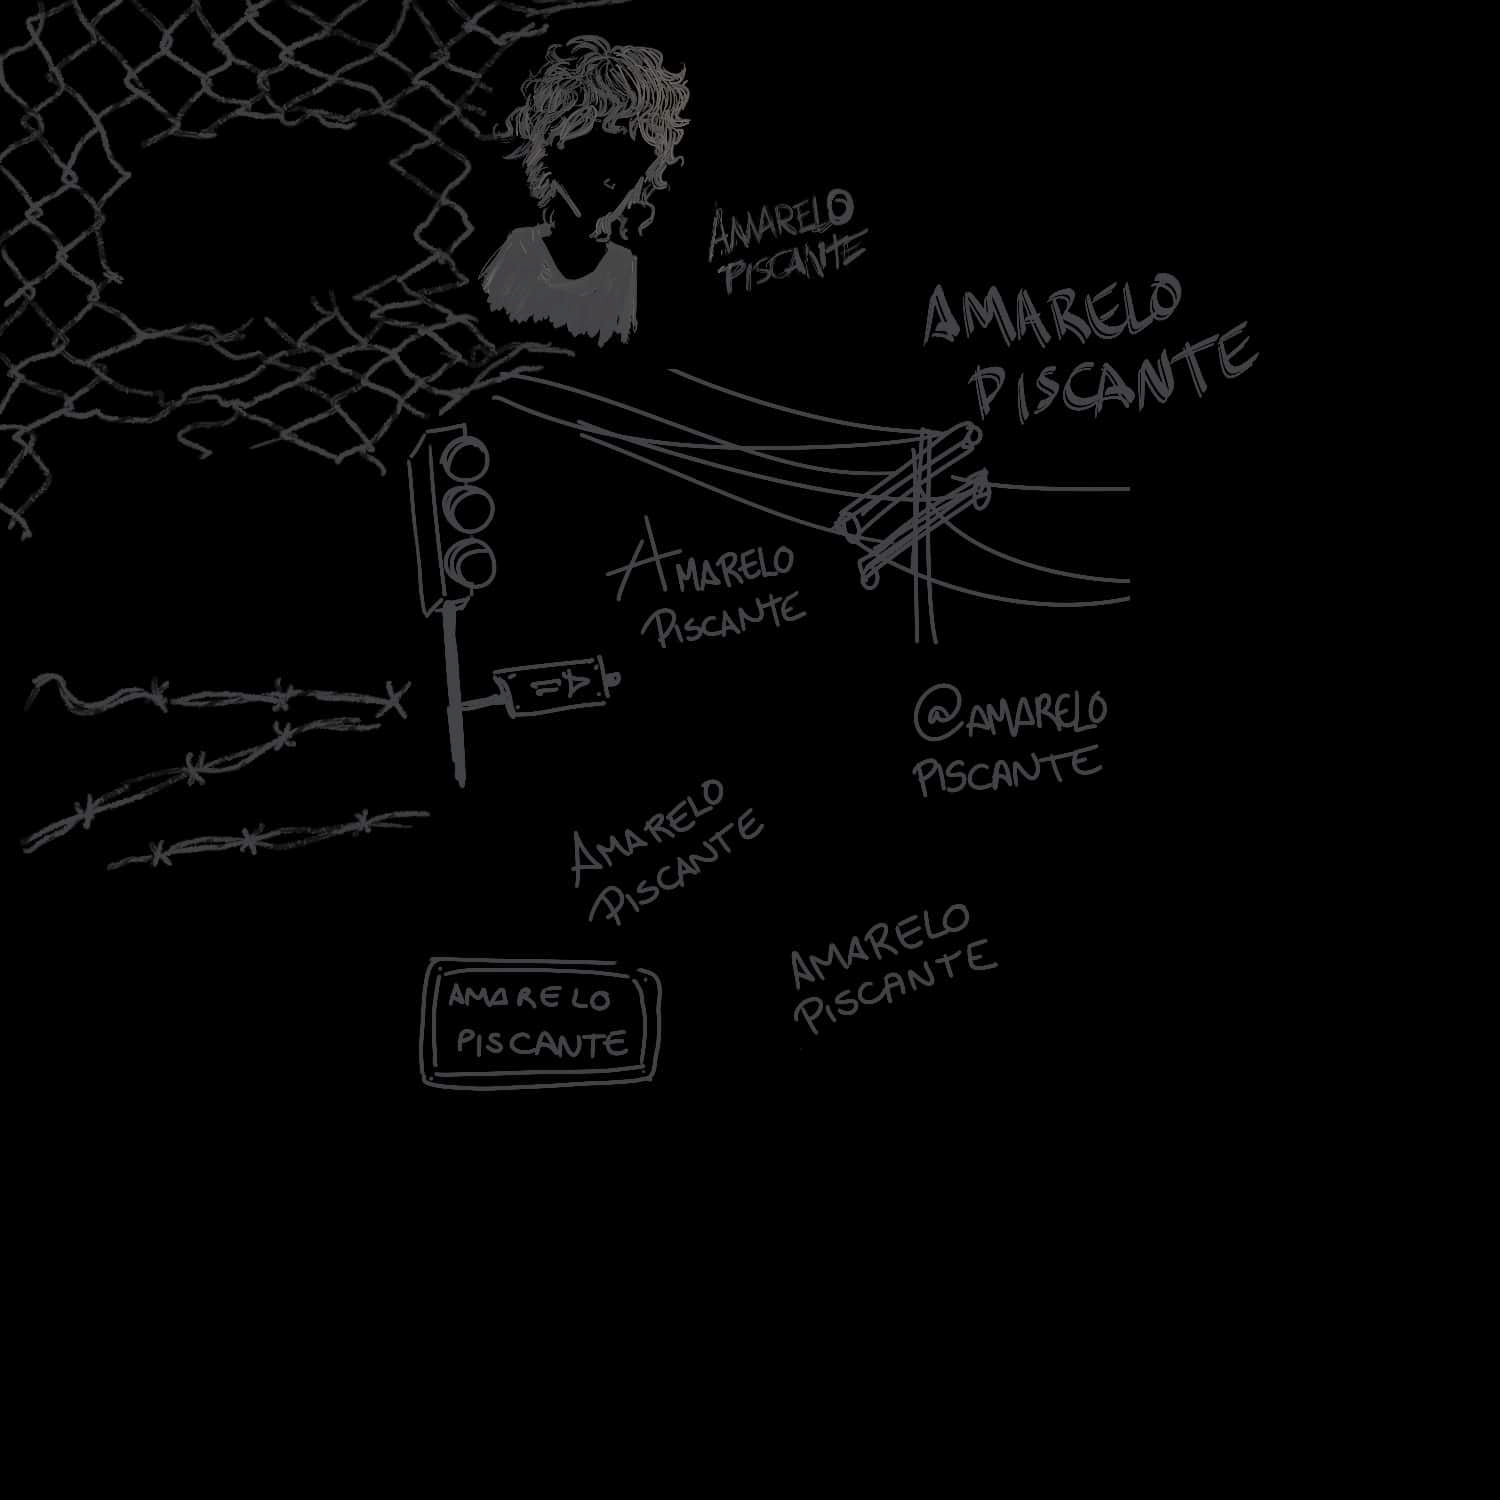 AMARELO
PISCANTE
AMARELO
PISCANTE
AMARELO
PISCANTE
@AMARELO
PISCANTE
AMARELO
PISCANTE
AMARELO
PISCANTE
AMARELO
PISCANTE